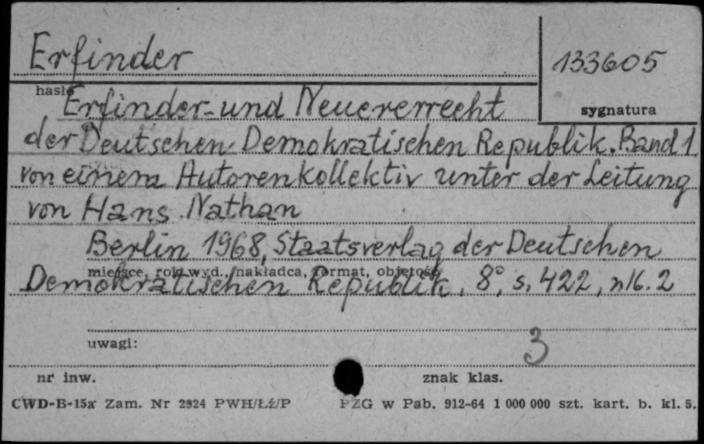 Erfinder
133605
hasło
sygnatura
Erfinder- und Neuererrecht
der Deutschen Demokratischen Republik. Band 1
von einem Autorenkollektiv unter der Leitung
von Hans Nathan
Berlin 1968, Staatsverlag der Deutschen
miejsce, rok wyd., nakładca, format, objętość
Demokratischen Republik, 8°, s. 422, nlb. 2
uwagi:
3
nr inw.
znak klas.
CWD-B-15a Zam. Nr 2924 PWH/Łź/P
PZG w Pab. 912-64 1 000 000 szt. kart. b. kl. 5.